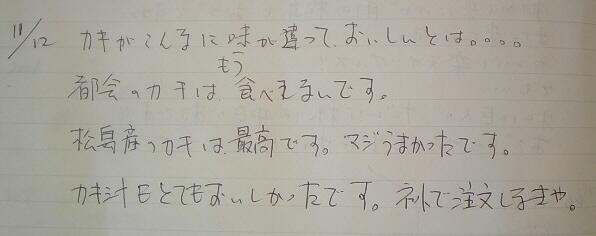 11/12 カキがこんなに味が違って、おいしいとは。。。。
都会のカキは、もう食べれないです。
松島産のカキは、最高です。マジうまかったです。
カキ汁もとてもおいしかったです。ネットで注文しなきゃ。